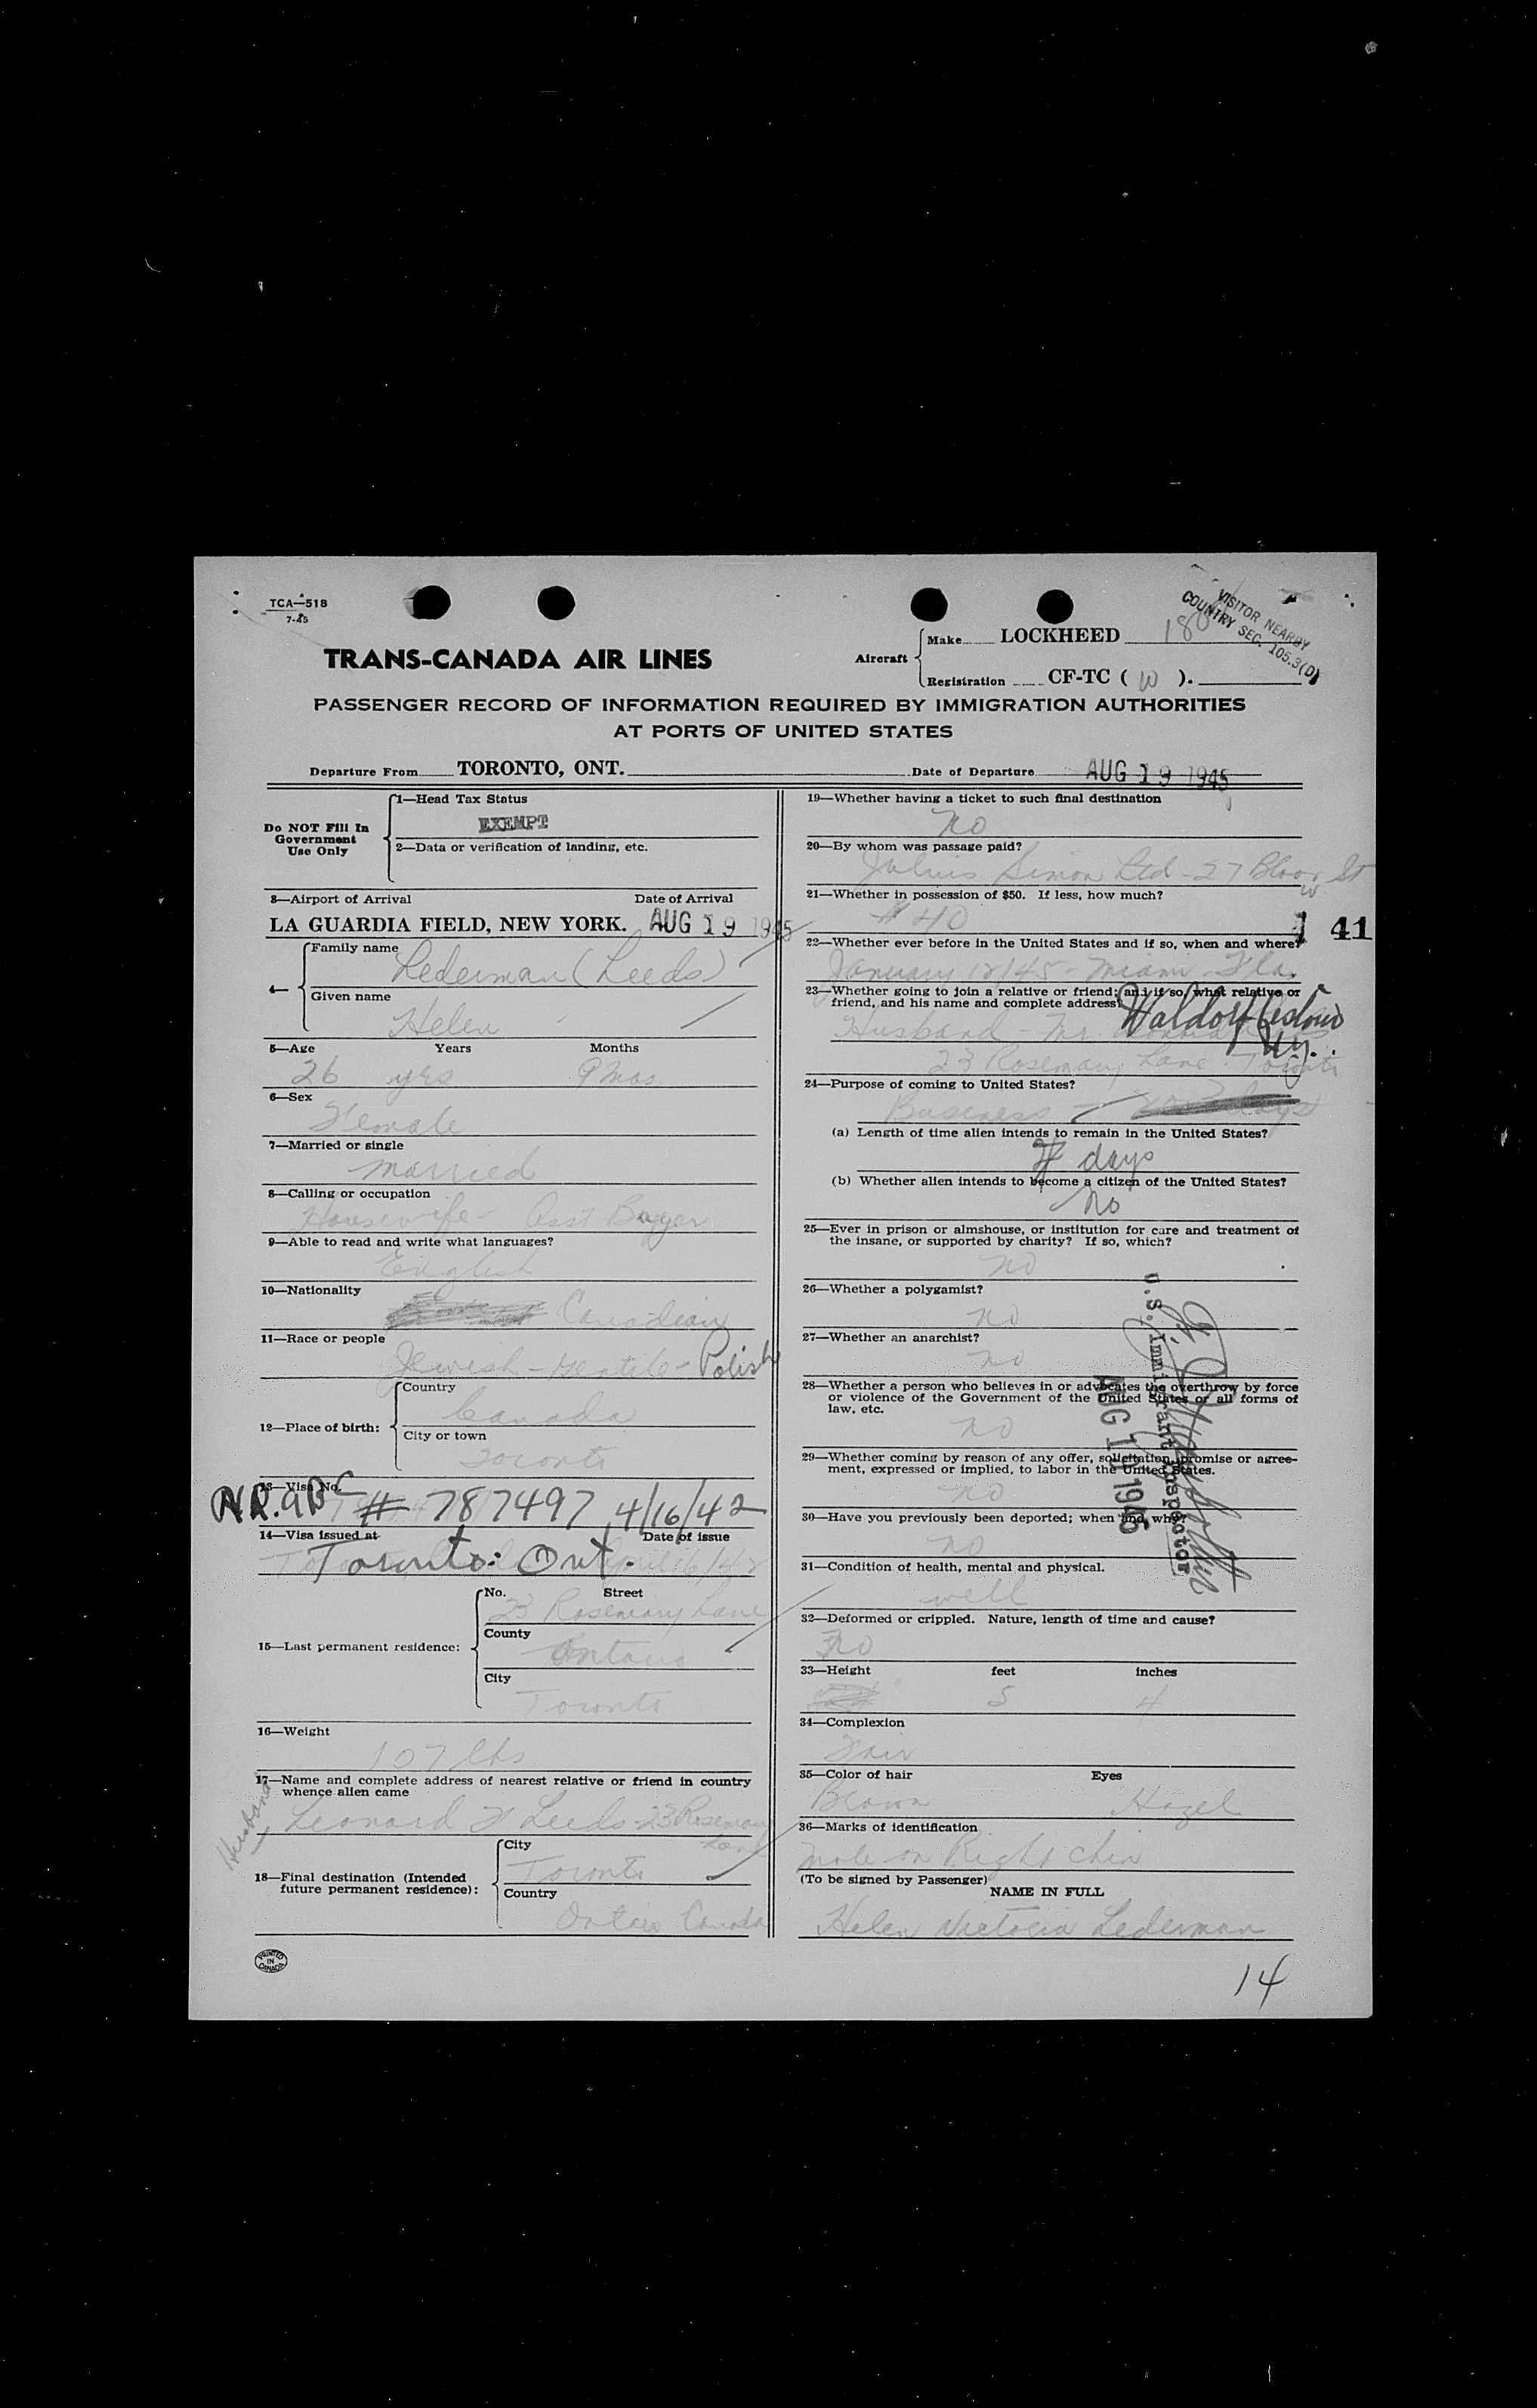 TCA—518
7-45
VISITOR NEARBY
COUNTRY SEC. 105.3(D)
TRANS-CANADA AIR LINES
Aircraft
Make LOCKHEED
Registration CF-TC ( W ).
PASSENGER RECORD OF INFORMATION REQUIRED BY IMMIGRATION AUTHORITIES
AT PORTS OF UNITED STATES
Departure From TORONTO, ONT. Date of Departure AUG 19 1945
Do NOT Fill In
Government
Use Only
1—Head Tax Status
EXEMPT
2—Data or verification of landing, etc.
3—Airport of Arrival Date of Arrival
LA GUARDIA FIELD, NEW YORK. AUG 19 1945
4—
Family name
Lederman (Leeds)
Given name
Helen
5—Age Years Months
26 yrs 9 mos
6—Sex
Female
7—Married or single
married
8—Calling or occupation
Housewife - Asst Buyer
9—Able to read and write what languages?
English
10—Nationality
Canadian
11—Race or people
Jewish - Gentile - Polish
12—Place of birth:
Country
Canada
City or town
Toronto
13—Visa No.
# 787497 4/16/42
14—Visa issued at Date of issue
Toronto: Ont.
15—Last permanent residence:
No. Street
23 Rosemary Lane
County
Ontario
City
Toronto
16—Weight
107 lbs
17—Name and complete address of nearest relative or friend in country
whence alien came
Husband
Leonard F Leeds - 23 Rosemary
Lane
18—Final destination (Intended
future permanent residence):
City
Toronto
Country
Ontario Canada
PRINTED
IN
CANADA
19—Whether having a ticket to such final destination
No
20—By whom was passage paid?
Julius Simon Ltd - 27 Bloor St
W.
21—Whether in possession of $50. If less, how much?
$40
41
22—Whether ever before in the United States and if so, when and where?
January 12/45 - Miami - Fla.
23—Whether going to join a relative or friend; and if so, what relative or
friend, and his name and complete address?
Waldorf Astoria
N.Y.
Husband - Mr.
23 Rosemary Lane - Toronto
24—Purpose of coming to United States?
Business -
(a) Length of time alien intends to remain in the United States?
days
(b) Whether alien intends to become a citizen of the United States?
No
25—Ever in prison or almshouse, or institution for care and treatment of
the insane, or supported by charity? If so, which?
No
26—Whether a polygamist?
No
27—Whether an anarchist?
No
28—Whether a person who believes in or advocates the overthrow by force
or violence of the Government of the United States or all forms of
law, etc.
No
29—Whether coming by reason of any offer, solicitation, promise or agree-
ment, expressed or implied, to labor in the United States.
No
30—Have you previously been deported; when and why?
No
U.S. Immigrant Inspector
AUG 19 1945
31—Condition of health, mental and physical.
well
32—Deformed or crippled. Nature, length of time and cause?
No
33—Height feet inches
5 4
34—Complexion
Fair
35—Color of hair Eyes
Brown Hazel
36—Marks of identification
mole on Right chin
(To be signed by Passenger)
NAME IN FULL
Helen Victoria Lederman
14